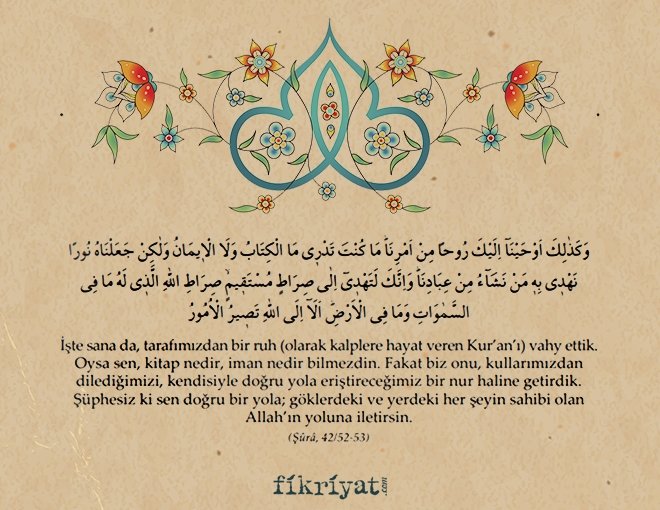 وَكَذٰلِكَ اَوْحَيْنَٓا اِلَيْكَ رُوحًا مِنْ اَمْرِنَاۜ مَا كُنْتَ تَدْرٖى مَا الْكِتَابُ وَلَا الْاٖيمَانُ وَلٰكِنْ جَعَلْنَاهُ نُورًا
نَهْدٖى بِهٖ مَنْ نَشَٓاءُ مِنْ عِبَادِنَاۜ وَاِنَّكَ لَتَهْدٖٓى اِلٰى صِرَاطٍ مُسْتَقٖيمٍۙ صِرَاطِ اللّٰهِ الَّذٖى لَهُ مَا فِى
السَّمٰوَاتِ وَمَا فِى الْاَرْضِۜ اَلَٓا اِلَى اللّٰهِ تَصٖيرُ الْاُمُورُ
İşte sana da, tarafımızdan bir ruh (olarak kalplere hayat veren Kur’an’ı) vahy ettik.
Oysa sen, kitap nedir, iman nedir bilmezdin. Fakat biz onu, kullarımızdan
dilediğimizi, kendisiyle doğru yola eriştireceğimiz bir nur haline getirdik.
Şüphesiz ki sen doğru bir yola; göklerdeki ve yerdeki her şeyin sahibi olan
Allah’ın yoluna iletirsin.
(Şûrâ, 42/52-53)
fikriyat.com